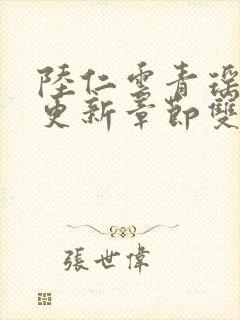 陸仁雲青瑤
更新章節雙
張世偉